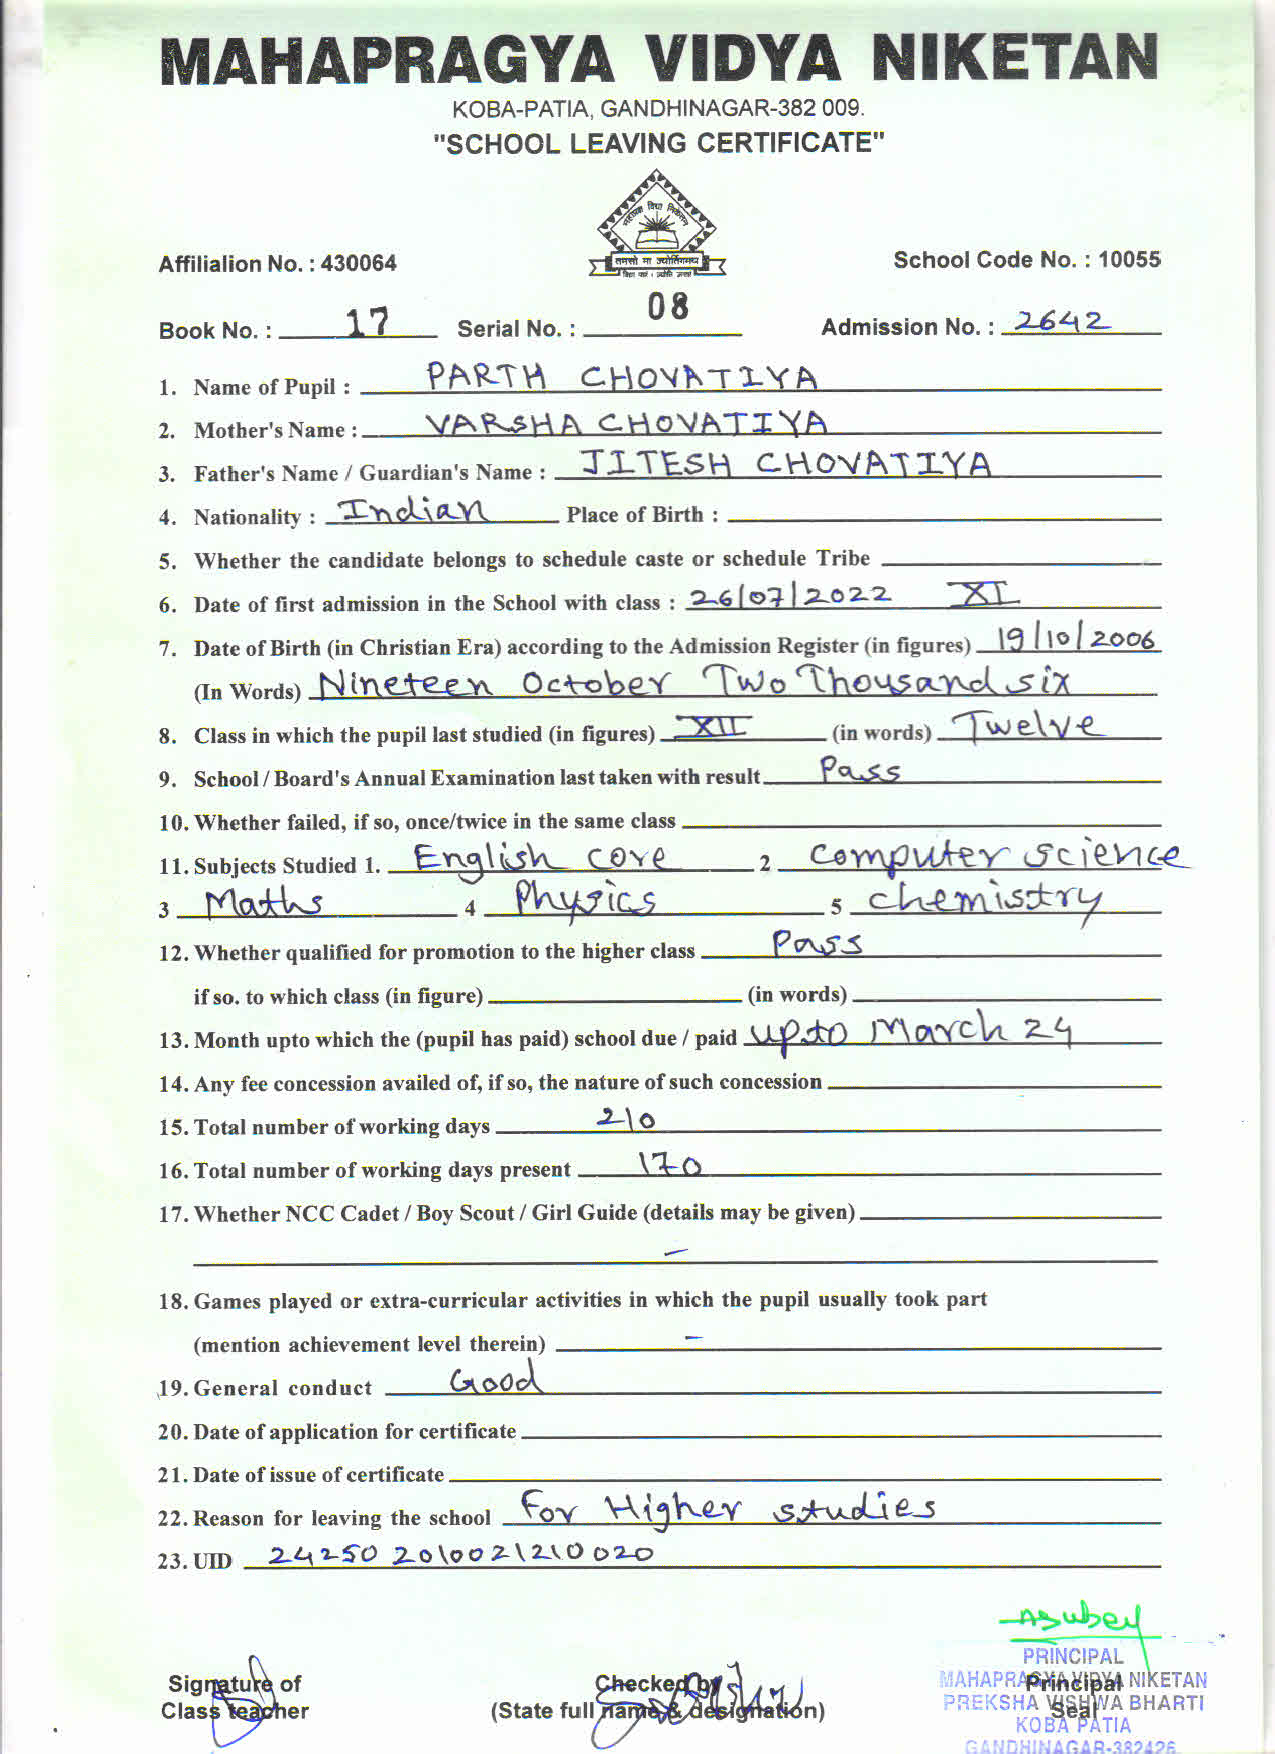 MAHAPRAGYA VIDYA NIKETAN
KOBA-PATIA, GANDHINAGAR-382 009.
"SCHOOL LEAVING CERTIFICATE"
महाप्रज्ञ विद्या निकेतन
तमसो मा ज्योतिर्गमय
Affilialion No. : 430064
School Code No. : 10055
Book No. : 17 Serial No. : 08 Admission No. : 2642
1. Name of Pupil : PARTH CHOVATIYA
2. Mother's Name : VARSHA CHOVATIYA
3. Father's Name / Guardian's Name : JITESH CHOVATIYA
4. Nationality : Indian Place of Birth :
5. Whether the candidate belongs to schedule caste or schedule Tribe
6. Date of first admission in the School with class : 26/07/2022 XI
7. Date of Birth (in Christian Era) according to the Admission Register (in figures) 19/10/2006
(In Words) Nineteen October Two Thousand six
8. Class in which the pupil last studied (in figures) XII (in words) Twelve
9. School / Board's Annual Examination last taken with result Pass
10. Whether failed, if so, once/twice in the same class
11. Subjects Studied 1. English core 2 computer science
3 Maths 4 Physics 5 chemistry
12. Whether qualified for promotion to the higher class Pass
if so. to which class (in figure) (in words)
13. Month upto which the (pupil has paid) school due / paid upto March 24
14. Any fee concession availed of, if so, the nature of such concession
15. Total number of working days 210
16. Total number of working days present 170
17. Whether NCC Cadet / Boy Scout / Girl Guide (details may be given)
–
18. Games played or extra-curricular activities in which the pupil usually took part
(mention achievement level therein) –
19. General conduct Good
20. Date of application for certificate
21. Date of issue of certificate
22. Reason for leaving the school For Higher studies
23. UID 24250 2010021210020
PRINCIPAL
MAHAPRAGYA VIDYA NIKETAN
PREKSHA VISHWA BHARTI
KOBA PATIA
GANDHINAGAR-382426
Signature of
Class teacher
Checked by
(State full name & designation)
Principal
Seal